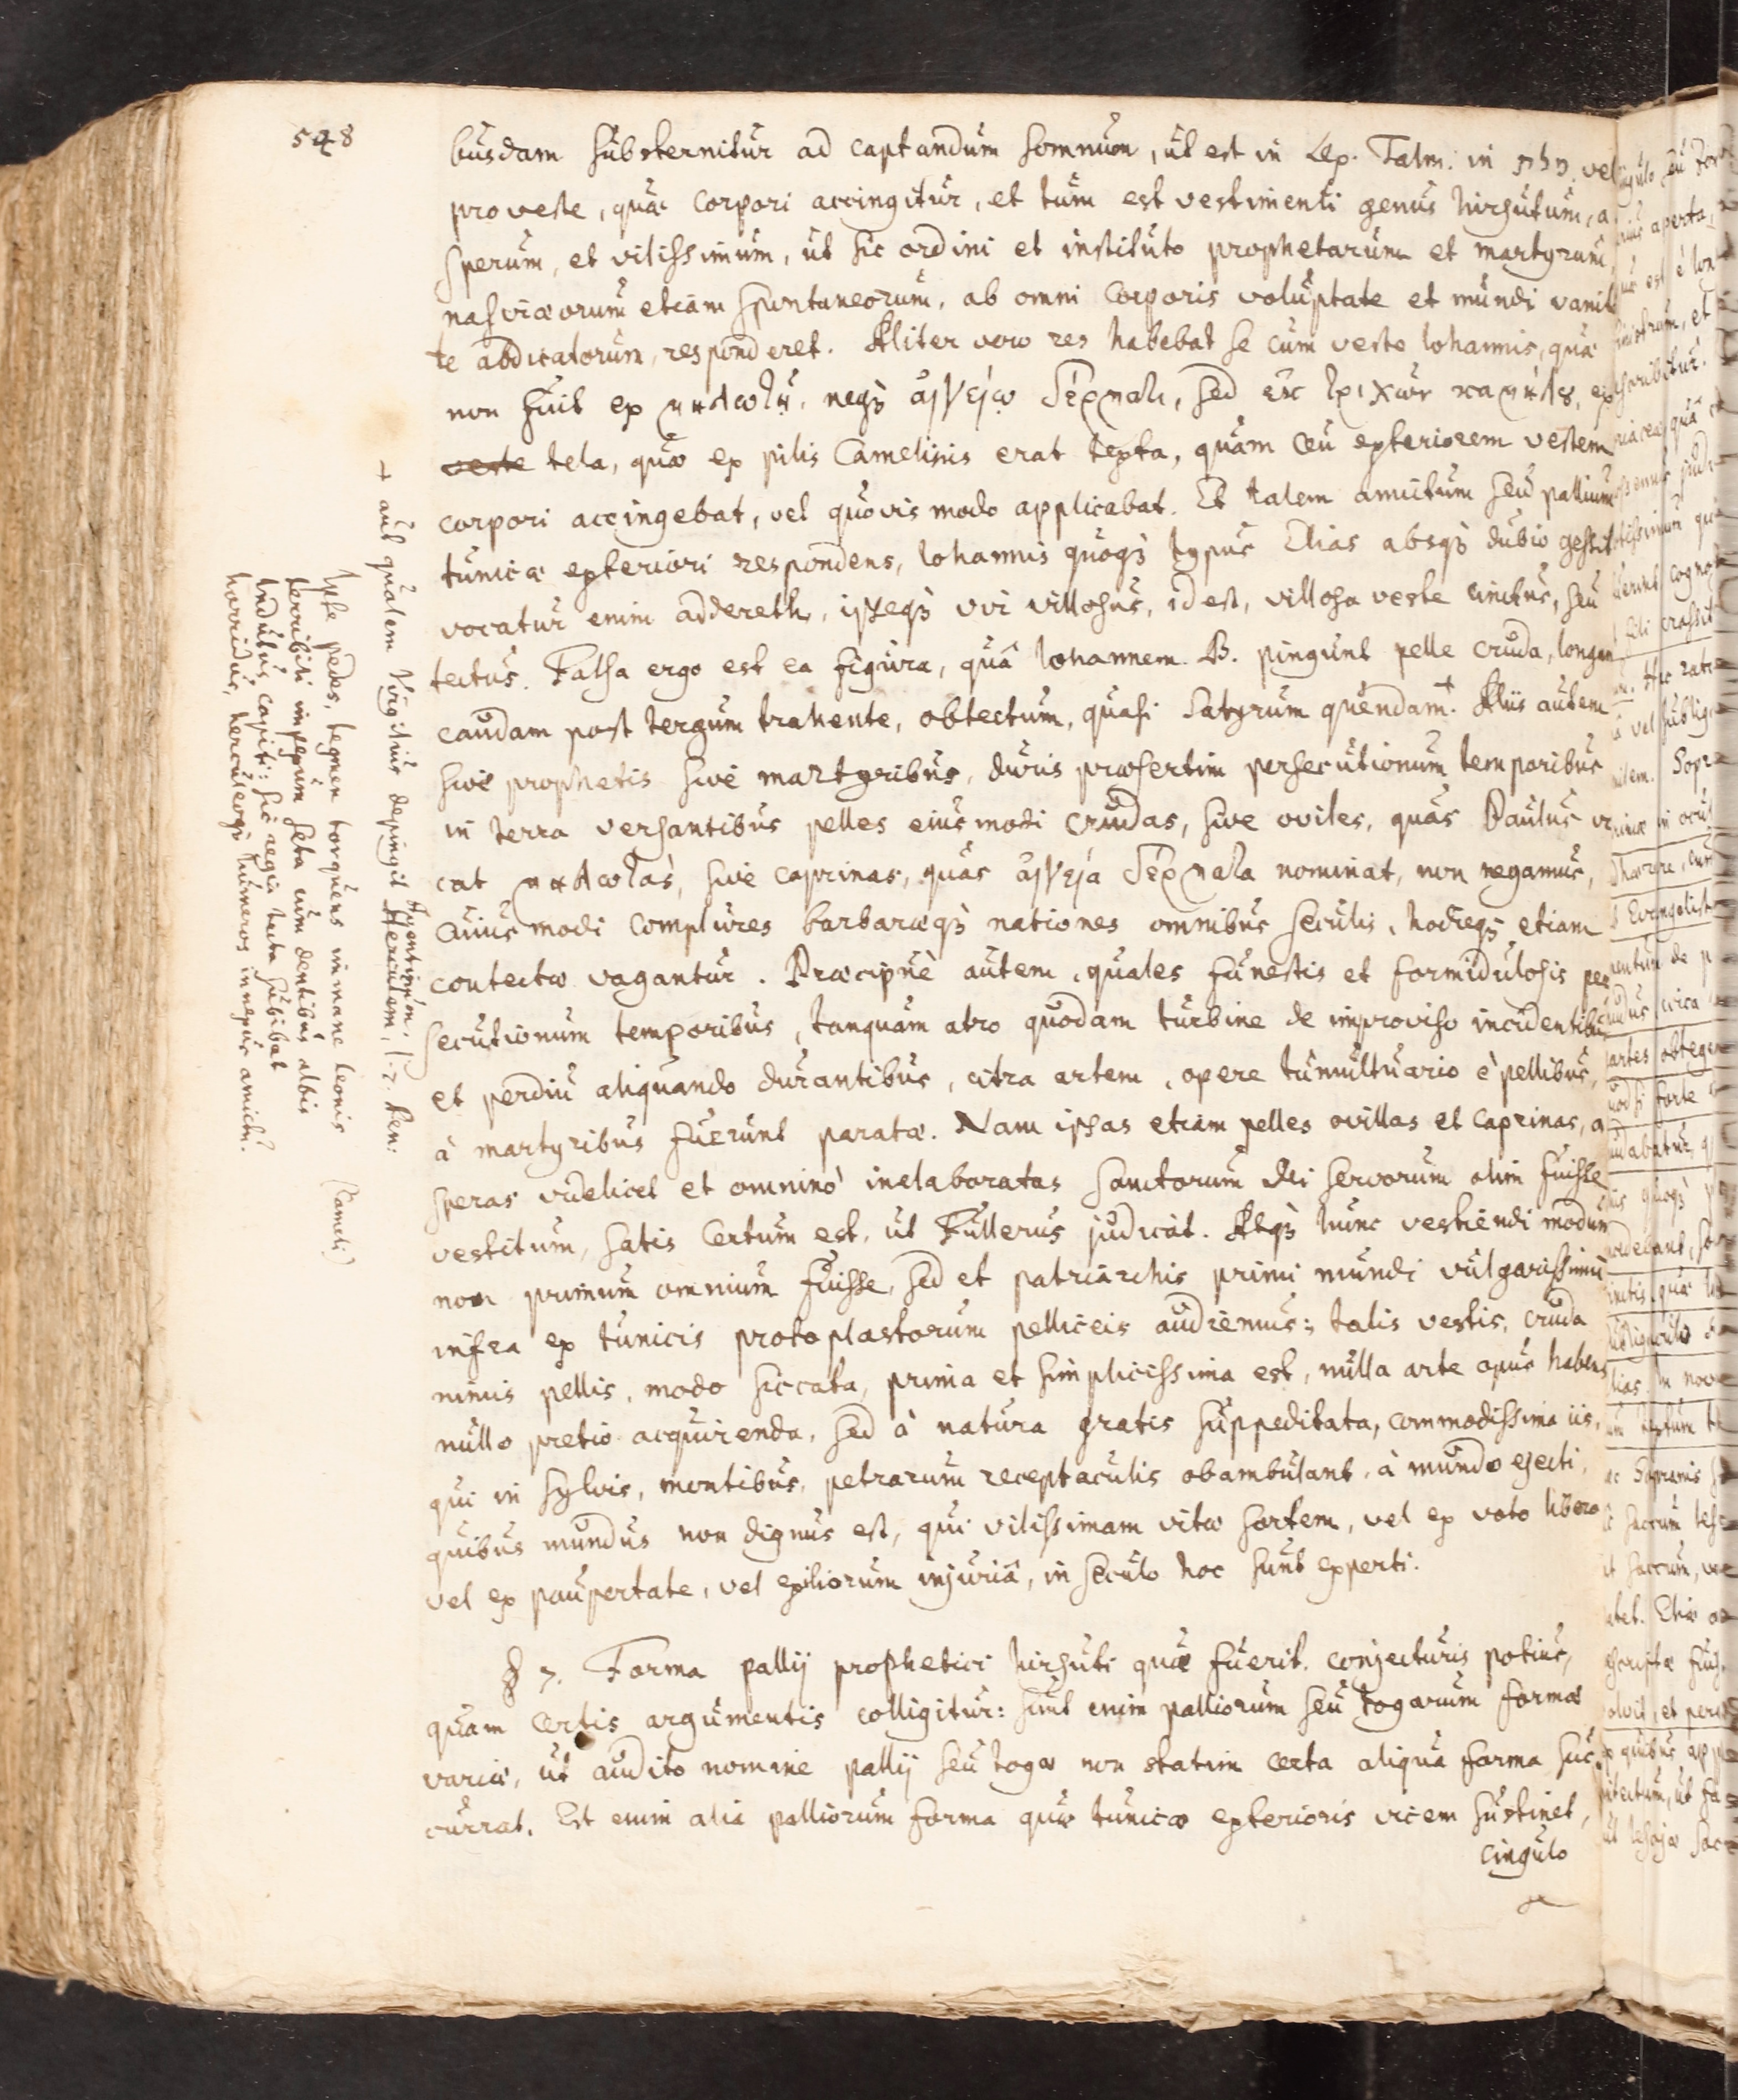 548
busdam substernitur ad captandum somnum, ut est in Lex. Talm. in vel
pro veste, quæ corpori accingitur, et tum est vestimenti genus hirsutum, a
sperum, et vilissimum, ut sic ordini et instituto prophetarum et martyrum,
nasiræorum etiam spontaneorum, ab omni corporis voluptate et mundi vanita
te abdicatorum, responderet. Aliter vero res habebat se cum veste Iohannis, quæ
non fuit ex μηλωτῇ, neqꝫ ἀιγείῳ δέρματι, sed ἐκ τριχῶν καμήλȣ, ex
veste tela, quæ ex pilis Camelinis erat texta, quam ceu exteriorem vestem
corpori accingebat, vel quovis modo applicabat. Et talem amictum seu pallium
tunicæ exteriori respondens, Iohannis quoqꝫ typus Elias absqꝫ dubio gessit
vocatur enim addereth, ipseqꝫ vir villosus, id est, villosa veste cinctus, seu
tectus. Falsa ergo est ea figura, quâ Iohannem B. pingunt pelle cruda, longam
caudam post tergum trahente, obtectum, quasi Satyrum quendam.+ Aliis autem
sive prophetis sive martyribus, duris præsertim persecutionum temporibus
in terra versantibus pelles eiusmodi crudas, sive oviles, quas Paulus vo
cat μηλωτὰς, sive caprinas, quas ἀιγεία δέρματα nominat, non negamus,
cuiusmodi complures barbaræqꝫ nationes omnibus seculis, hodieqꝫ etiam
contectæ vagantur. Præcipuè autem, quales funestis et formidulosis per
secutionum temporibus, tanquam atro quodam turbine de improviso incidentibus
et perdiu aliquando durantibus, citra artem, opere tumultuario è pellibus,
à martyribus fuerunt paratæ. Nam ipsas etiam pelles ovillas et caprinas, a
speras videlicet et omninò inelaboratas sanctorum Dei servorum olim fuisse
vestitum, satis certum est, ut Fullerus judicat. Atqꝫ hunc vestiendi modum
non primum omnium fuisse, sed et patriarchis primi mundi vulgarissimu
infra ex tunicis protoplastorum pelliceis audiemus; talis vestis, cruda
nimis pellis, modo siccata, prima et simplicissima est, nulla arte opus habens
nullo pretio acquirenda, sed à natura gratis suppeditata, commodissima iis,
qui in sylvis, montibus, petrarum receptaculis obambulant, à mundo ejecti,
quibus mundus non dignus est, qui vilissimam vitæ sortem, vel ex voto libero
vel ex paupertate, vel exiliorum injuriâ, in seculo hoc sunt experti.
§ 7. Forma pallij prophetici hirsuti quæ fuerit, conjecturis potius,
quam certis argumentis colligitur: sunt enim palliorum seu togarum formæ
variæ, ut audito nomine pallij seu togæ non statim certa aliqua forma suc
currat. Est enim alia palliorum forma quæ tunicæ exterioris vicem sustinet,
cingulo
+ aut qualem Virgilius depingit Herculem, l. 7. Æen:
Aventinum.
Ipse pedes, tegmen torquens immane leonis
terribili impexum seta cum dentibus albis
indutus capiti: sic regia tecta subibat
horridus, herculeoqꝫ humeros innexus amictu.
(Cameli)